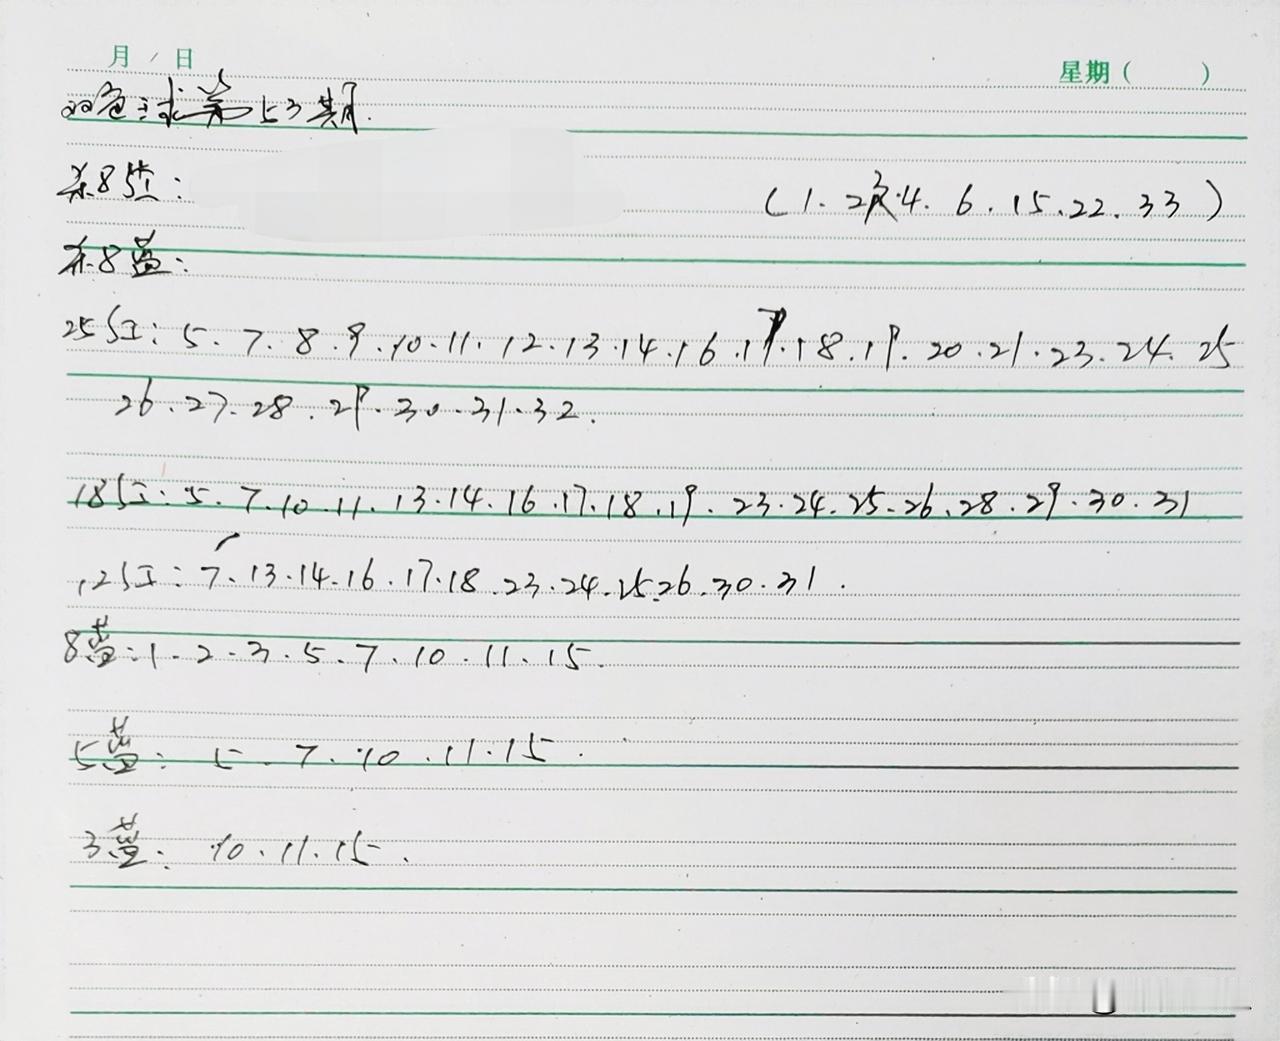 月 / 日 星期 ( )
双色球第53期.
杀8红: (1.2.3.4.6.15.22.33)
杀8蓝:
25红: 5.7.8.9.10.11.12.13.14.16.17.18.19.20.21.23.24.25
26.27.28.29.30.31.32.
18红: 5.7.10.11.13.14.16.17.18.19.23.24.25.26.28.29.30.31
12红: 7.13.14.16.17.18.23.24.25.26.30.31.
8蓝: 1.2.3.5.7.10.11.15.
5蓝: 5.7.10.11.15.
3蓝: 10.11.15.